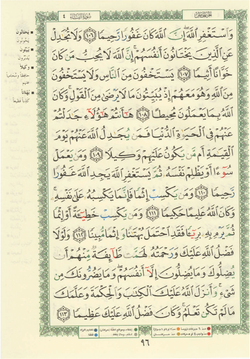 وَٱسۡتَغۡفِرِ ٱللَّهَۖ إِنَّ ٱللَّهَ كَانَ غَفُورٗا رَّحِيمٗا ١٠٦ وَلَا تُجَٰدِلۡ
عَنِ ٱلَّذِينَ يَخۡتَانُونَ أَنفُسَهُمۡۚ إِنَّ ٱللَّهَ لَا يُحِبُّ مَن كَانَ
خَوَّانًا أَثِيمٗا ١٠٧ يَسۡتَخۡفُونَ مِنَ ٱلنَّاسِ وَلَا يَسۡتَخۡفُونَ
مِنَ ٱللَّهِ وَهُوَ مَعَهُمۡ إِذۡ يُبَيِّتُونَ مَا لَا يَرۡضَىٰ مِنَ ٱلۡقَوۡلِۚ وَكَانَ
ٱللَّهُ بِمَا يَعۡمَلُونَ مُحِيطًا ١٠٨ هَٰٓأَنتُمۡ هَٰٓؤُلَآءِ جَٰدَلۡتُمۡ
عَنۡهُمۡ فِي ٱلۡحَيَوٰةِ ٱلدُّنۡيَا فَمَن يُجَٰدِلُ ٱللَّهَ عَنۡهُمۡ يَوۡمَ
ٱلۡقِيَٰمَةِ أَم مَّن يَكُونُ عَلَيۡهِمۡ وَكِيلٗا ١٠٩ وَمَن يَعۡمَلۡ
سُوٓءًا أَوۡ يَظۡلِمۡ نَفۡسَهُۥ ثُمَّ يَسۡتَغۡفِرِ ٱللَّهَ يَجِدِ ٱللَّهَ غَفُورٗا
رَّحِيمٗا ١١٠ وَمَن يَكۡسِبۡ إِثۡمٗا فَإِنَّمَا يَكۡسِبُهُۥ عَلَىٰ نَفۡسِهِۦۚ
وَكَانَ ٱللَّهُ عَلِيمًا حَكِيمٗا ١١١ وَمَن يَكۡسِبۡ خَطِيٓـَٔةً أَوۡ إِثۡمٗا
ثُمَّ يَرۡمِ بِهِۦ بَرِيٓـٔٗا فَقَدِ ٱحۡتَمَلَ بُهۡتَٰنٗا وَإِثۡمٗا مُّبِينٗا ١١٢ وَلَوۡلَا
فَضۡلُ ٱللَّهِ عَلَيۡكَ وَرَحۡمَتُهُۥ لَهَمَّت طَّآئِفَةٞ مِّنۡهُمۡ أَن
يُضِلُّوكَ وَمَا يُضِلُّونَ إِلَّآ أَنفُسَهُمۡۖ وَمَا يَضُرُّونَكَ مِن
شَيۡءٖۚ وَأَنزَلَ ٱللَّهُ عَلَيۡكَ ٱلۡكِتَٰبَ وَٱلۡحِكۡمَةَ وَعَلَّمَكَ
مَا لَمۡ تَكُن تَعۡلَمُۚ وَكَانَ فَضۡلُ ٱللَّهِ عَلَيۡكَ عَظِيمٗا ١١٣
٩٦